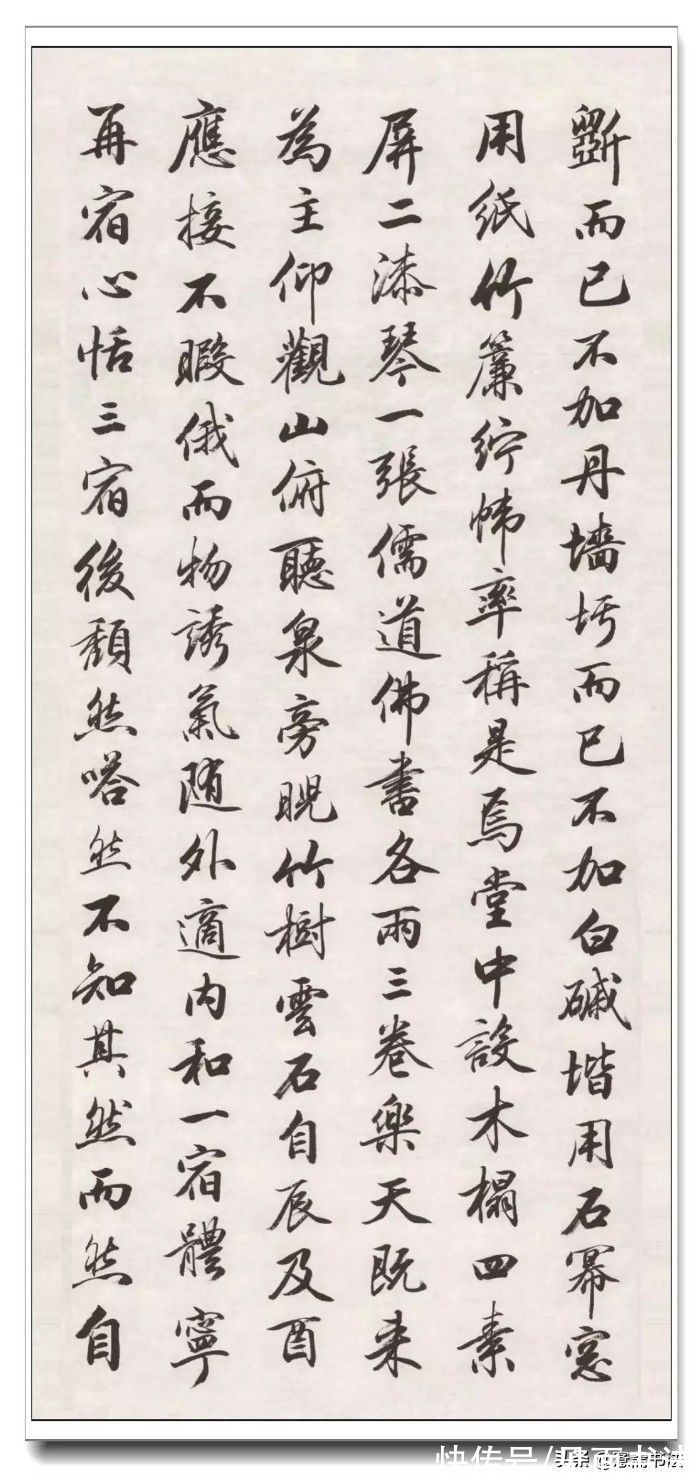 斵而已不加丹墻圬而已不加白磩堦用石冪窓
用紙竹簾紵幃率稱是焉堂中設木榻四素
屏二漆琴一張儒道佛書各兩三卷樂天既来
為主仰觀山俯聽泉旁睨竹樹雲石自辰及酉
應接不暇俄而物誘氣随外適内和一宿體寧
再宿心恬三宿後頹然嗒然不知其然而然自